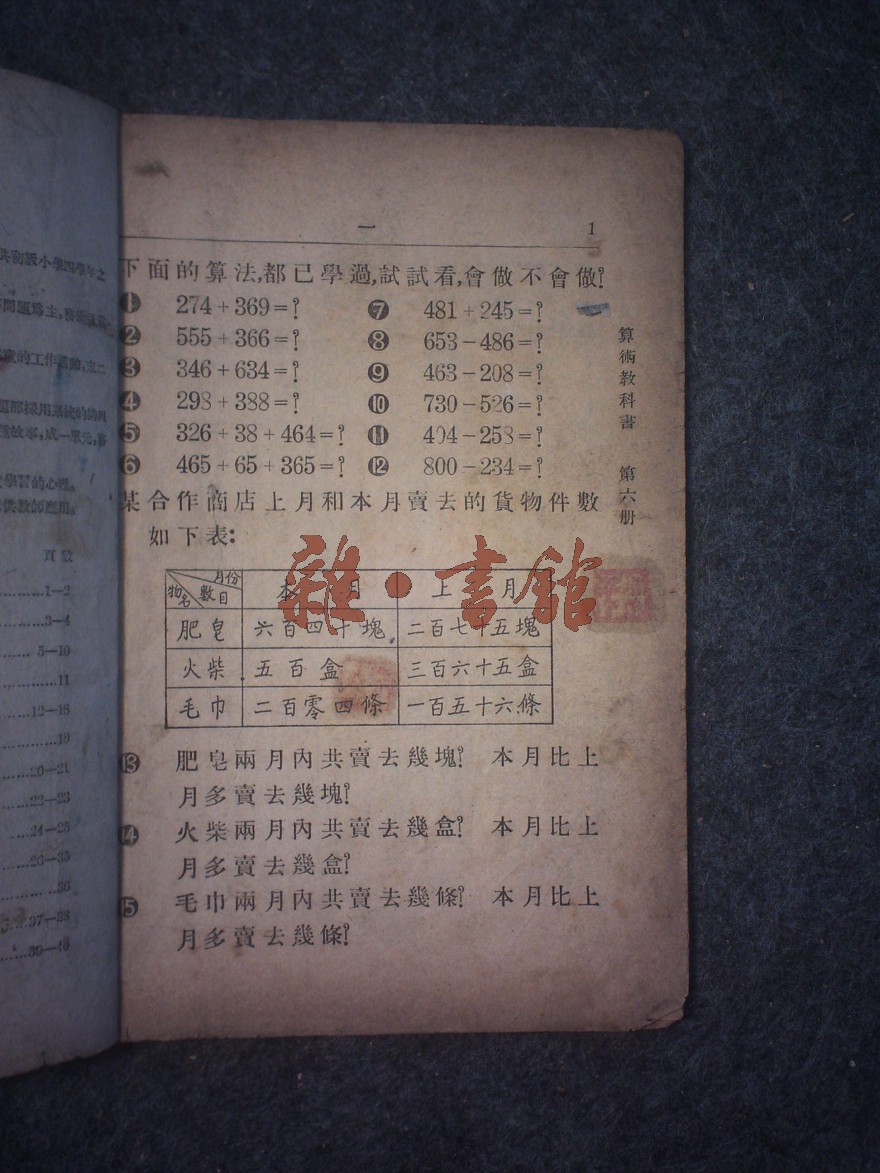 共初級小學四學年之
1–2
3–4
5–10
11
12–18
19
20–21
22–23
24–25
26–35
36
37–38
一 1
下面的算法,都已學過,試試看,會做不會做?
❶ 274+369=? ❼ 481+245=?
❷ 555+366=? ❽ 653−486=?
❸ 346+634=? ❾ 463−208=?
❹ 298+388=? ❿ 730−526=?
❺ 326+38+464=? ⓫ 404−258=?
❻ 465+65+365=? ⓬ 800−234=?
某合作商店上月和本月賣去的貨物件數
如下表:
月份 數目 物名 本月 上月
肥皂 六百四十塊 二百七十五塊
火柴 五百盒 三百六十五盒
毛巾 二百零四條 一百五十六條
⓭ 肥皂兩月內共賣去幾塊? 本月比上
月多賣去幾塊?
⓮ 火柴兩月內共賣去幾盒? 本月比上
月多賣去幾盒?
⓯ 毛巾兩月內共賣去幾條? 本月比上
月多賣去幾條?
算術教科書 第六册
雜·書館